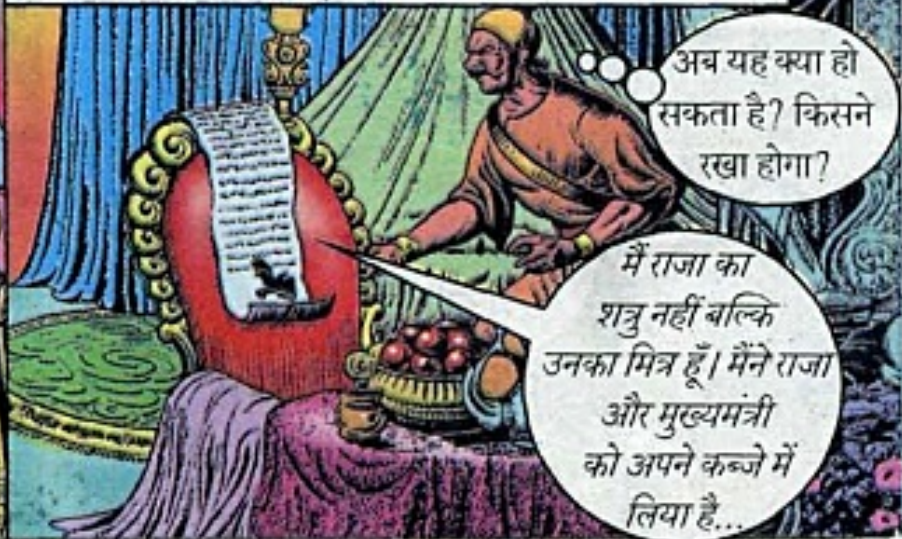 अब यह क्या हो
सकता है? किसने
रखा होगा?
मैं राजा का
शत्रु नहीं बल्कि
उनका मित्र हूँ। मैंने राजा
और मुख्यमंत्री
को अपने कब्जे में
लिया है...